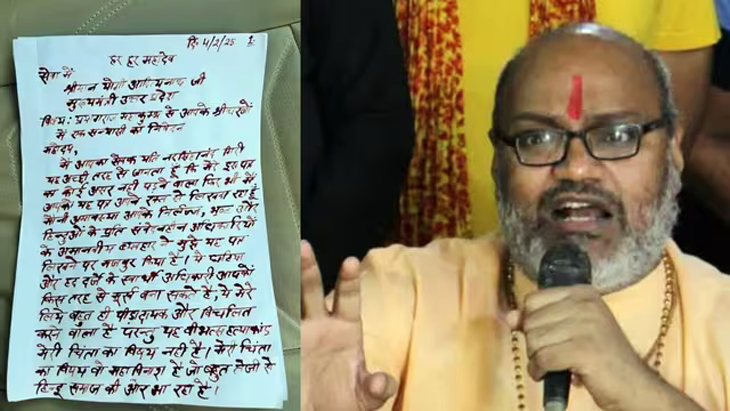 दि. 4/2/25 1.
हर हर महादेव
सेवा में
श्रीमान योगी आदित्यनाथ जी
मुख्यमंत्री उत्तर प्रदेश
विषय: प्रयागराज महाकुम्भ से आपके श्रीचरणों
में एक सन्यासी का निवेदन
महोदय,
मैं आपका सेवक यति नरसिंहानंद गिरी
यह अच्छी तरह से जानता हूँ कि मेरे इस पत्र
का कोई असर नहीं पड़ने वाला फिर भी मैं
आपको यह पत्र अपने रक्त से लिख रहा हूँ
मौनी अमावस्या आपके निर्लज्ज, और
हिन्दुओं के प्रति संवेदनहीन अधिकारियों
के अमानवीय व्यवहार ने मुझे यह पत्र
लिखने पर मजबूर किया है। ये घटिया
और हर दर्जे के स्वार्थी अधिकारी आपको
किस तरह से मूर्ख बना सकते है, ये मेरे
लिये बहुत ही पीड़ादायक और विचलित
करने वाला है परन्तु यह वीभत्स हत्याकांड
मेरी चिंता का विषय नहीं है। मेरी चिंता
का विषय वो महाविनाश है जो बहुत तेजी से
हिन्दू समाज की ओर आ रहा है।